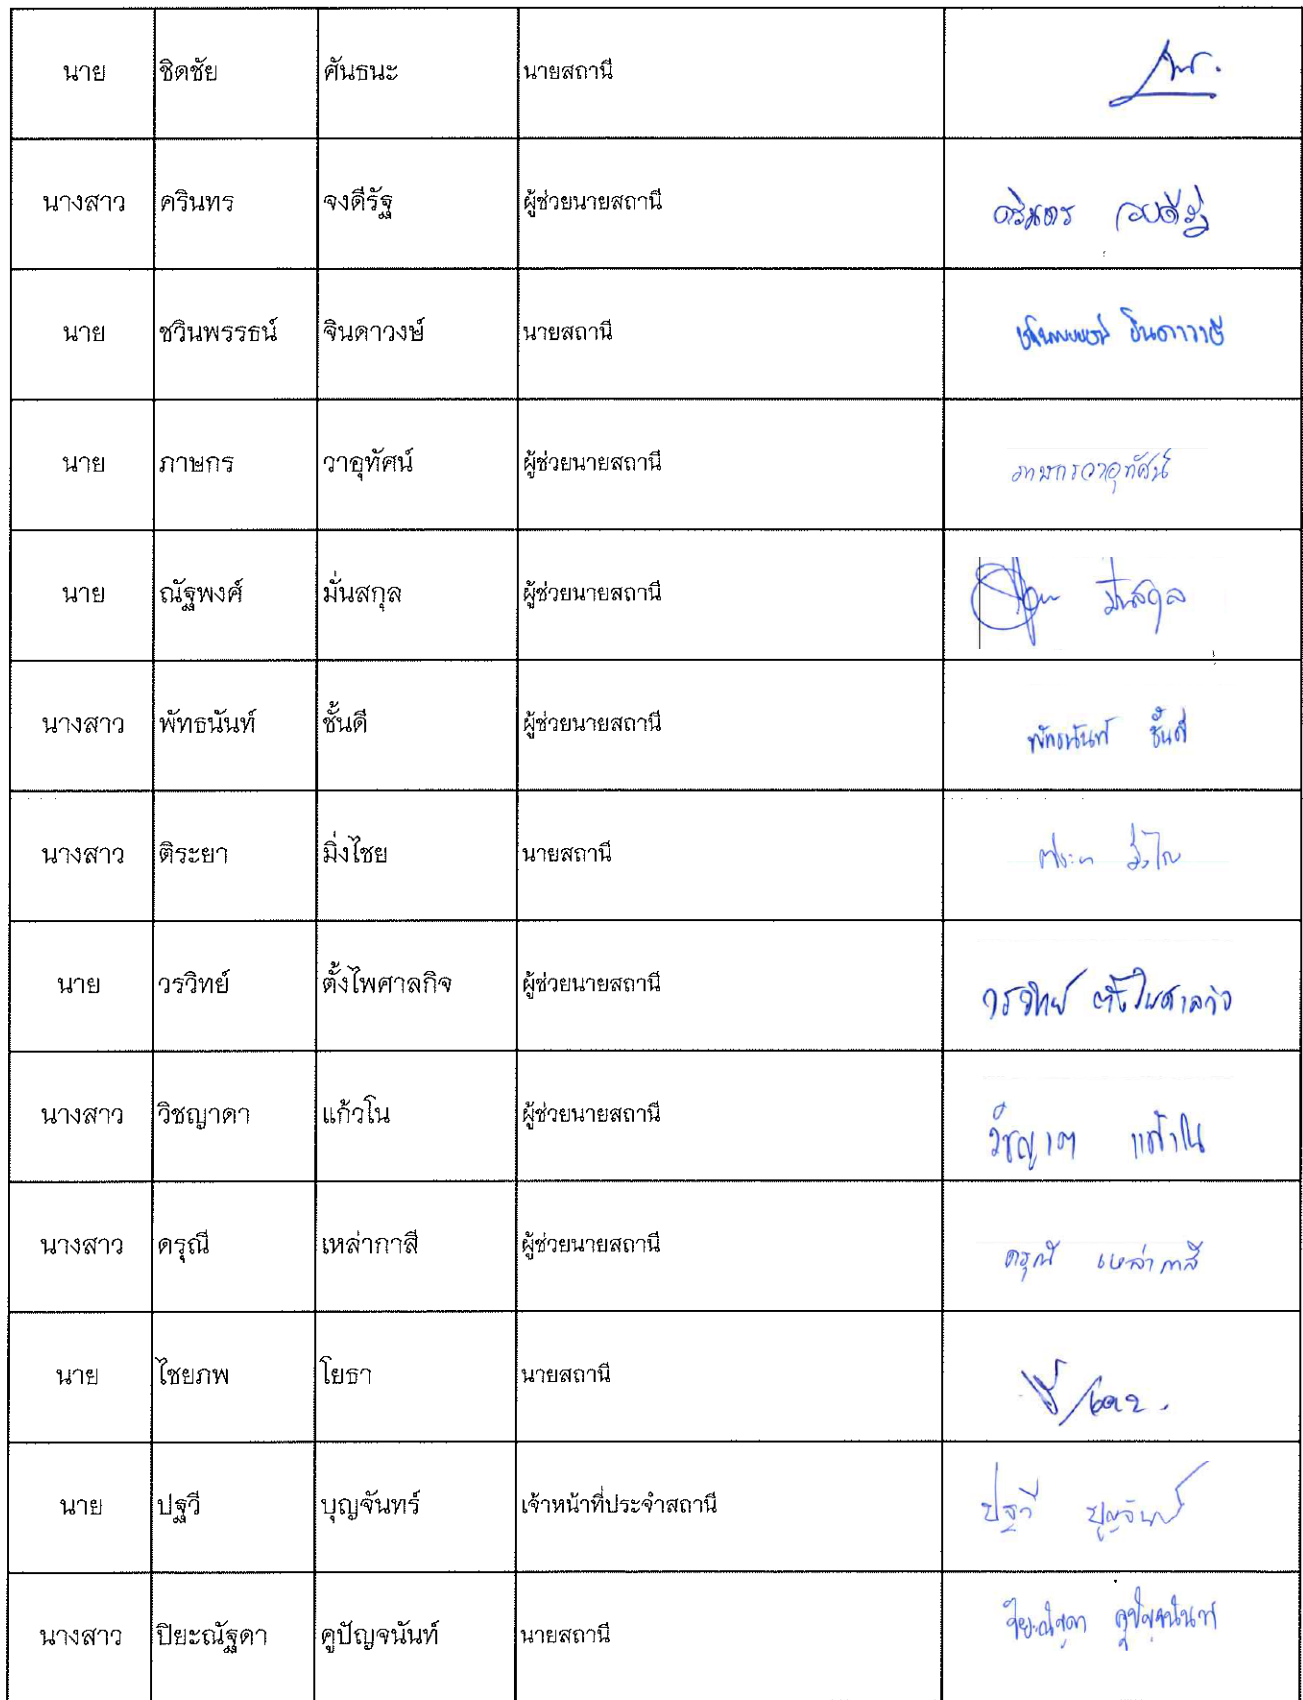 นาย ชิดชัย ศันธนะ นายสถานี
นางสาว ศรินทร จงดีรัฐ ผู้ช่วยนายสถานี ศรินทร จงดีรัฐ
นาย ชวินพรรธน์ จินดาวงษ์ นายสถานี ชวินพรรธน์ จินดาวงษ์
นาย ภาษกร วาอุทัศน์ ผู้ช่วยนายสถานี ภาษกร วาอุทัศน์
นาย ณัฐพงศ์ มั่นสกุล ผู้ช่วยนายสถานี มั่นสกุล
นางสาว พัทธนันท์ ชั้นดี ผู้ช่วยนายสถานี พัทธนันท์ ชั้นดี
นางสาว ติระยา มิ่งไชย นายสถานี
นาย วรวิทย์ ตั้งไพศาลกิจ ผู้ช่วยนายสถานี วรวิทย์ ตั้งไพศาลกิจ
นางสาว วิชญาดา แก้วโน ผู้ช่วยนายสถานี วิชญาดา แก้วโน
นางสาว ดรุณี เหล่ากาสี ผู้ช่วยนายสถานี ดรุณี เหล่ากาสี
นาย ไชยภพ โยธา นายสถานี
นาย ปฐวี บุญจันทร์ เจ้าหน้าที่ประจำสถานี ปฐวี บุญจันทร์
นางสาว ปิยะณัฐดา คูปัญจนันท์ นายสถานี ปิยะณัฐดา คูปัญจนันท์